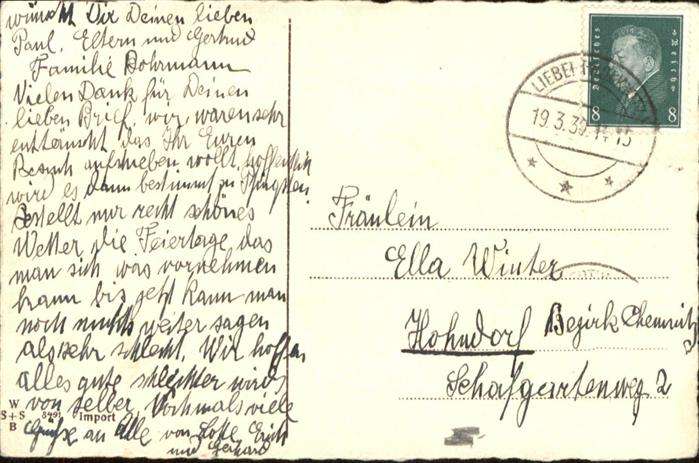 wünscht Dir Deinen lieben
Paul, Eltern und Gertrud
Familie Bohrmann
Vielen Dank für Deinen
lieben Brief, wir waren sehr
enttäuscht das Ihr Euren
Besuch aufschieben wollt, hoffentlich
wird es dann bestimmt zu Pfingsten.
Bestellt nur recht schönes
Wetter, die Feiertage das
man sich was vornehmen
kann bis jetzt kann man
noch nichts weiter sagen
als sehr schlecht. Wir hoffen
alles gute schlechter wirds
von selber. Nochmals viele
Grüße an Alle von Lotte Erich
und Gerhard
W
S+S 8491 Import
B
Deutsches Reich
8 8
19.3.30.14-15
Fräulein
Ella Winter
Hohndorf Bezirk Chemnitz
Schafgartenweg 2